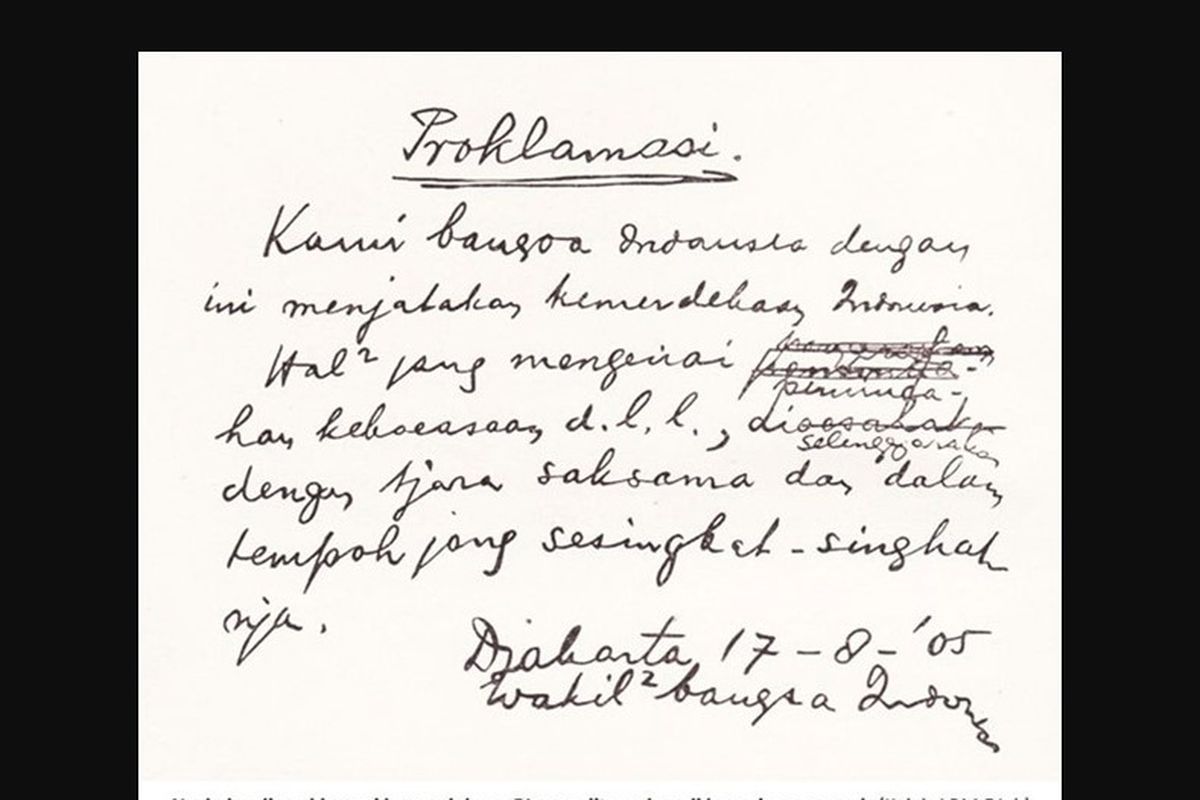 Proklamasi.
Kami bangsa Indonesia dengan
ini menjatakan kemerdekaan Indonesia.
Hal² jang mengenai
peminda-
han kekoeasaan d.l.l., dioesahakan
selenggarakan
dengan tjara saksama dan dalam
tempoh jang sesingkat-singkat
nja.
Djakarta 17-8-'05
Wakil² bangsa Indonesia